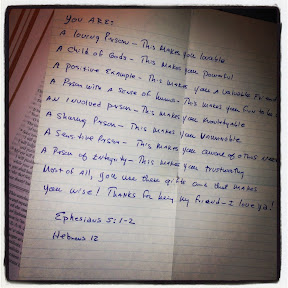 YOU ARE:
A loving Person - This makes you loveable
A Child of Gods - This makes you powerful
A positive Example - This makes you a valuable Friend
A Person with a sense of humor - This makes you fun to be
An involved person - This makes you knowledgable
A Sharing Person - This makes you
A Sensitive Person - This makes you aware of others needs
A Person of Integrity - This makes you trustworthy
Most of all, you use these gifts and that makes
you wise! Thanks for being my friend - I love ya!
Ephesians 5:1-2
Hebrews 12